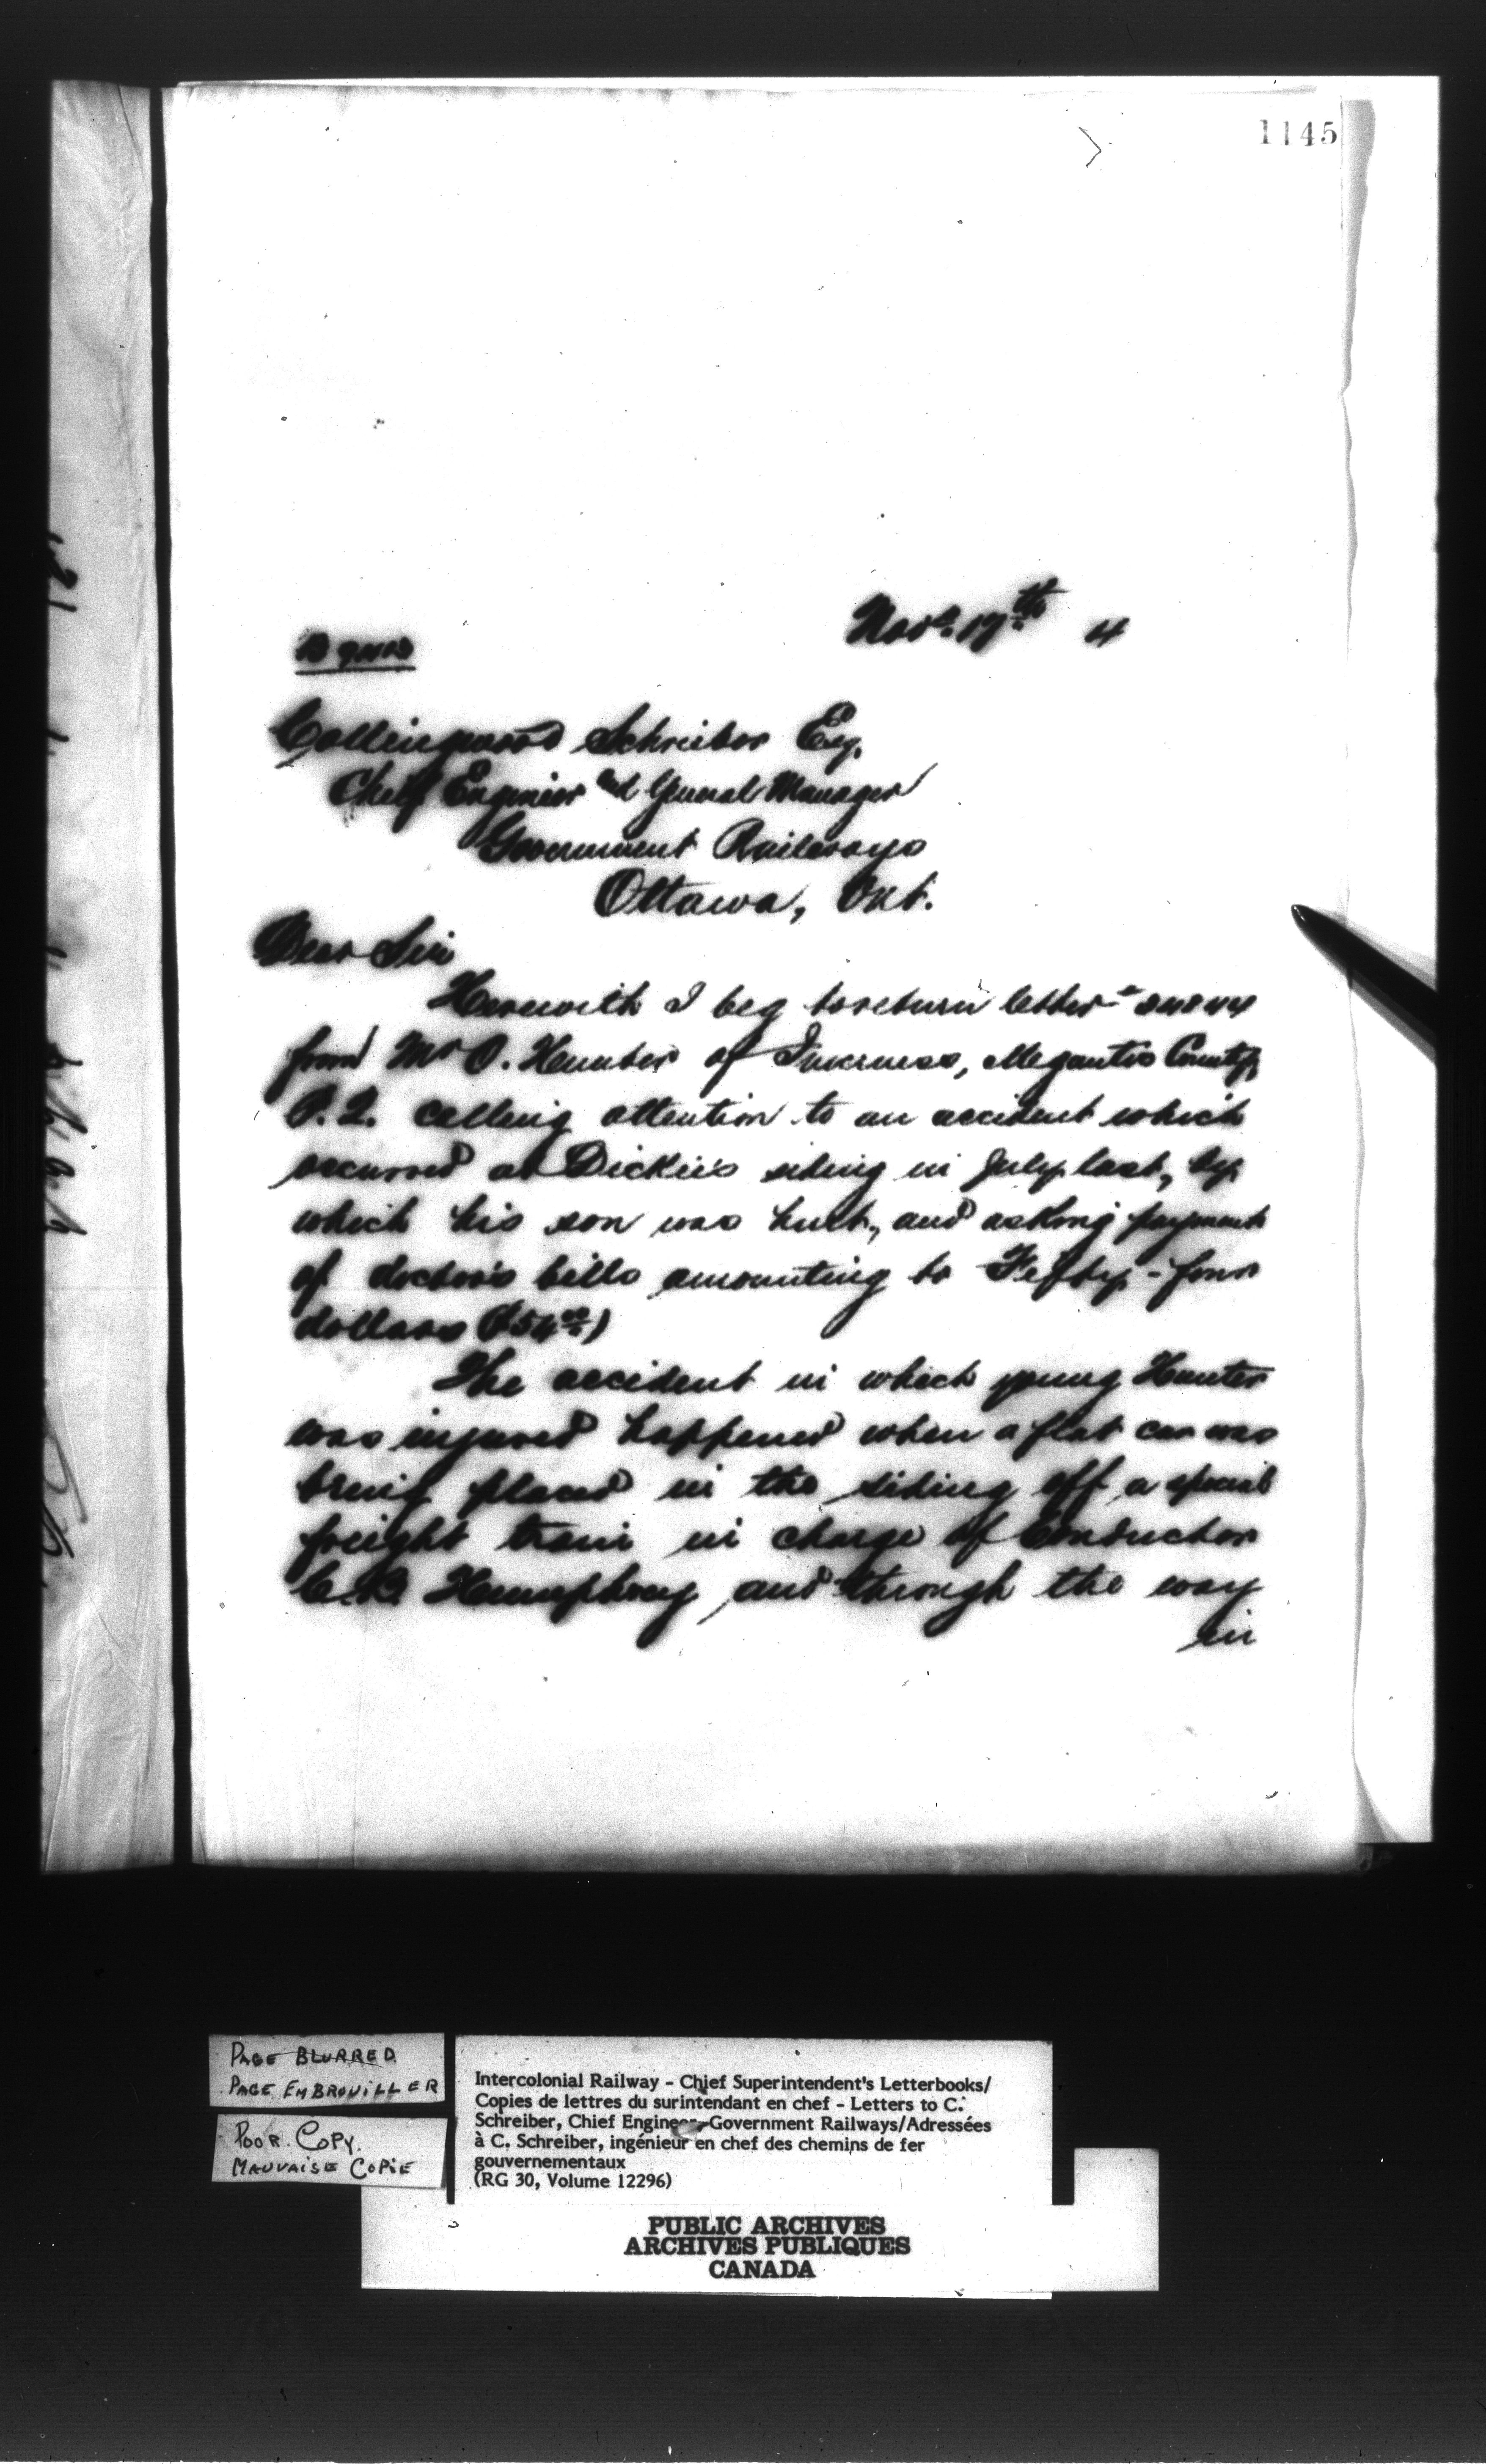 1145
Nov. 17th 4
Collingwood Schreiber Esq.
Chief Engineer and General Manager
Government Railways
Ottawa, Ont.
Dear Sir
Herewith I beg to return letter
from Mr O. Hunter of Inverness, Megantic County,
P.Q. calling attention to an accident which
occurred at Dickie's siding in July last, by
which his son was hurt, and asking payment
of doctor's bills amounting to Fifty-four
dollars ($54.00)
The accident in which young Hunter
was injured happened when a flat car was
being placed in the siding off a special
freight train in charge of Conductor
C.B. Humphrey, and through the way
in
PAGE BLURRED
PAGE EMBROUILLER
POOR COPY.
MAUVAISE COPIE
Intercolonial Railway - Chief Superintendent's Letterbooks/
Copies de lettres du surintendant en chef - Letters to C.
Schreiber, Chief Engineer-Government Railways/Adressées
à C. Schreiber, ingénieur en chef des chemins de fer
gouvernementaux
(RG 30, Volume 12296)
PUBLIC ARCHIVES
ARCHIVES PUBLIQUES
CANADA